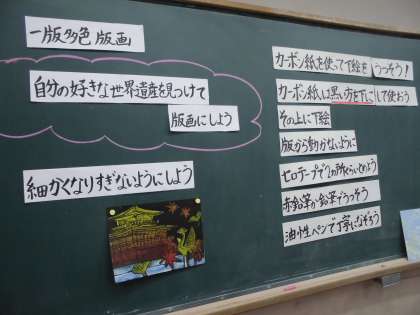 一版多色版画
自分の好きな世界遺産を見つけて
版画にしよう
細かくなりすぎないようにしよう
カーボン紙を使って下絵をうつそう!
カーボン紙は黒い方を下にして使おう
その上に下絵
版から動かないように
セロテープで2か所くらいとめよう
赤鉛筆か鉛筆でうつそう
油性ペンで丁寧になぞろう